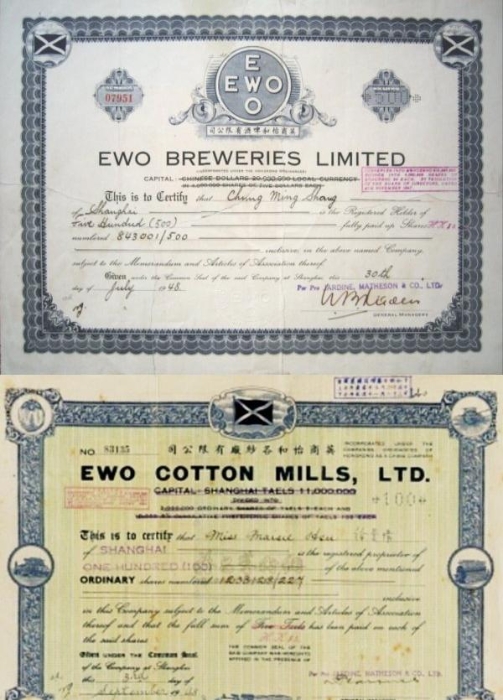 E
EWO
O
07951
500
司公限有酒啤和怡商英
EWO BREWERIES LIMITED
CAPITAL CHINESE DOLLARS 20,000,000 LOCAL CURRENCY
This is to Certify that Ching Ming Shang
of Shanghai is the Registered Holder of
Five Hundred (500) fully paid up Shares
numbered 843001/500
inclusive, in the above named Company
subject to the Memorandum and Articles of Association thereof.
Given under the Common Seal of the said Company at Shanghai this 30th
day of July 1948
Per Pro JARDINE, MATHESON & CO., LTD.
GENERAL MANAGERS
NO. 83135
司公限有廠紗各和怡商英
INCORPORATED UNDER THE
COMPANIES ORDINANCES OF
HONGKONG AS A CHINA COMPANY
EWO COTTON MILLS, LTD.
CAPITAL: SHANGHAI TAELS 11,000,000
DIVIDED INTO
100
This is to certify that Miss
of SHANGHAI is the registered proprietor of
ONE HUNDRED (100) of the above mentioned
ORDINARY shares numbered
inclusive
in this Company subject to the Memorandum and Articles of Association
thereof and that the full sum of Five Taels has been paid on each of
the said shares
Given UNDER THE Common Seal
of the Company at Shanghai
this 3rd
day of September 1948
THE COMMON SEAL OF THE
SAID COMPANY WAS HEREUNTO
AFFIXED IN THE PRESENCE OF
JARDINE, MATHESON & CO., LTD.